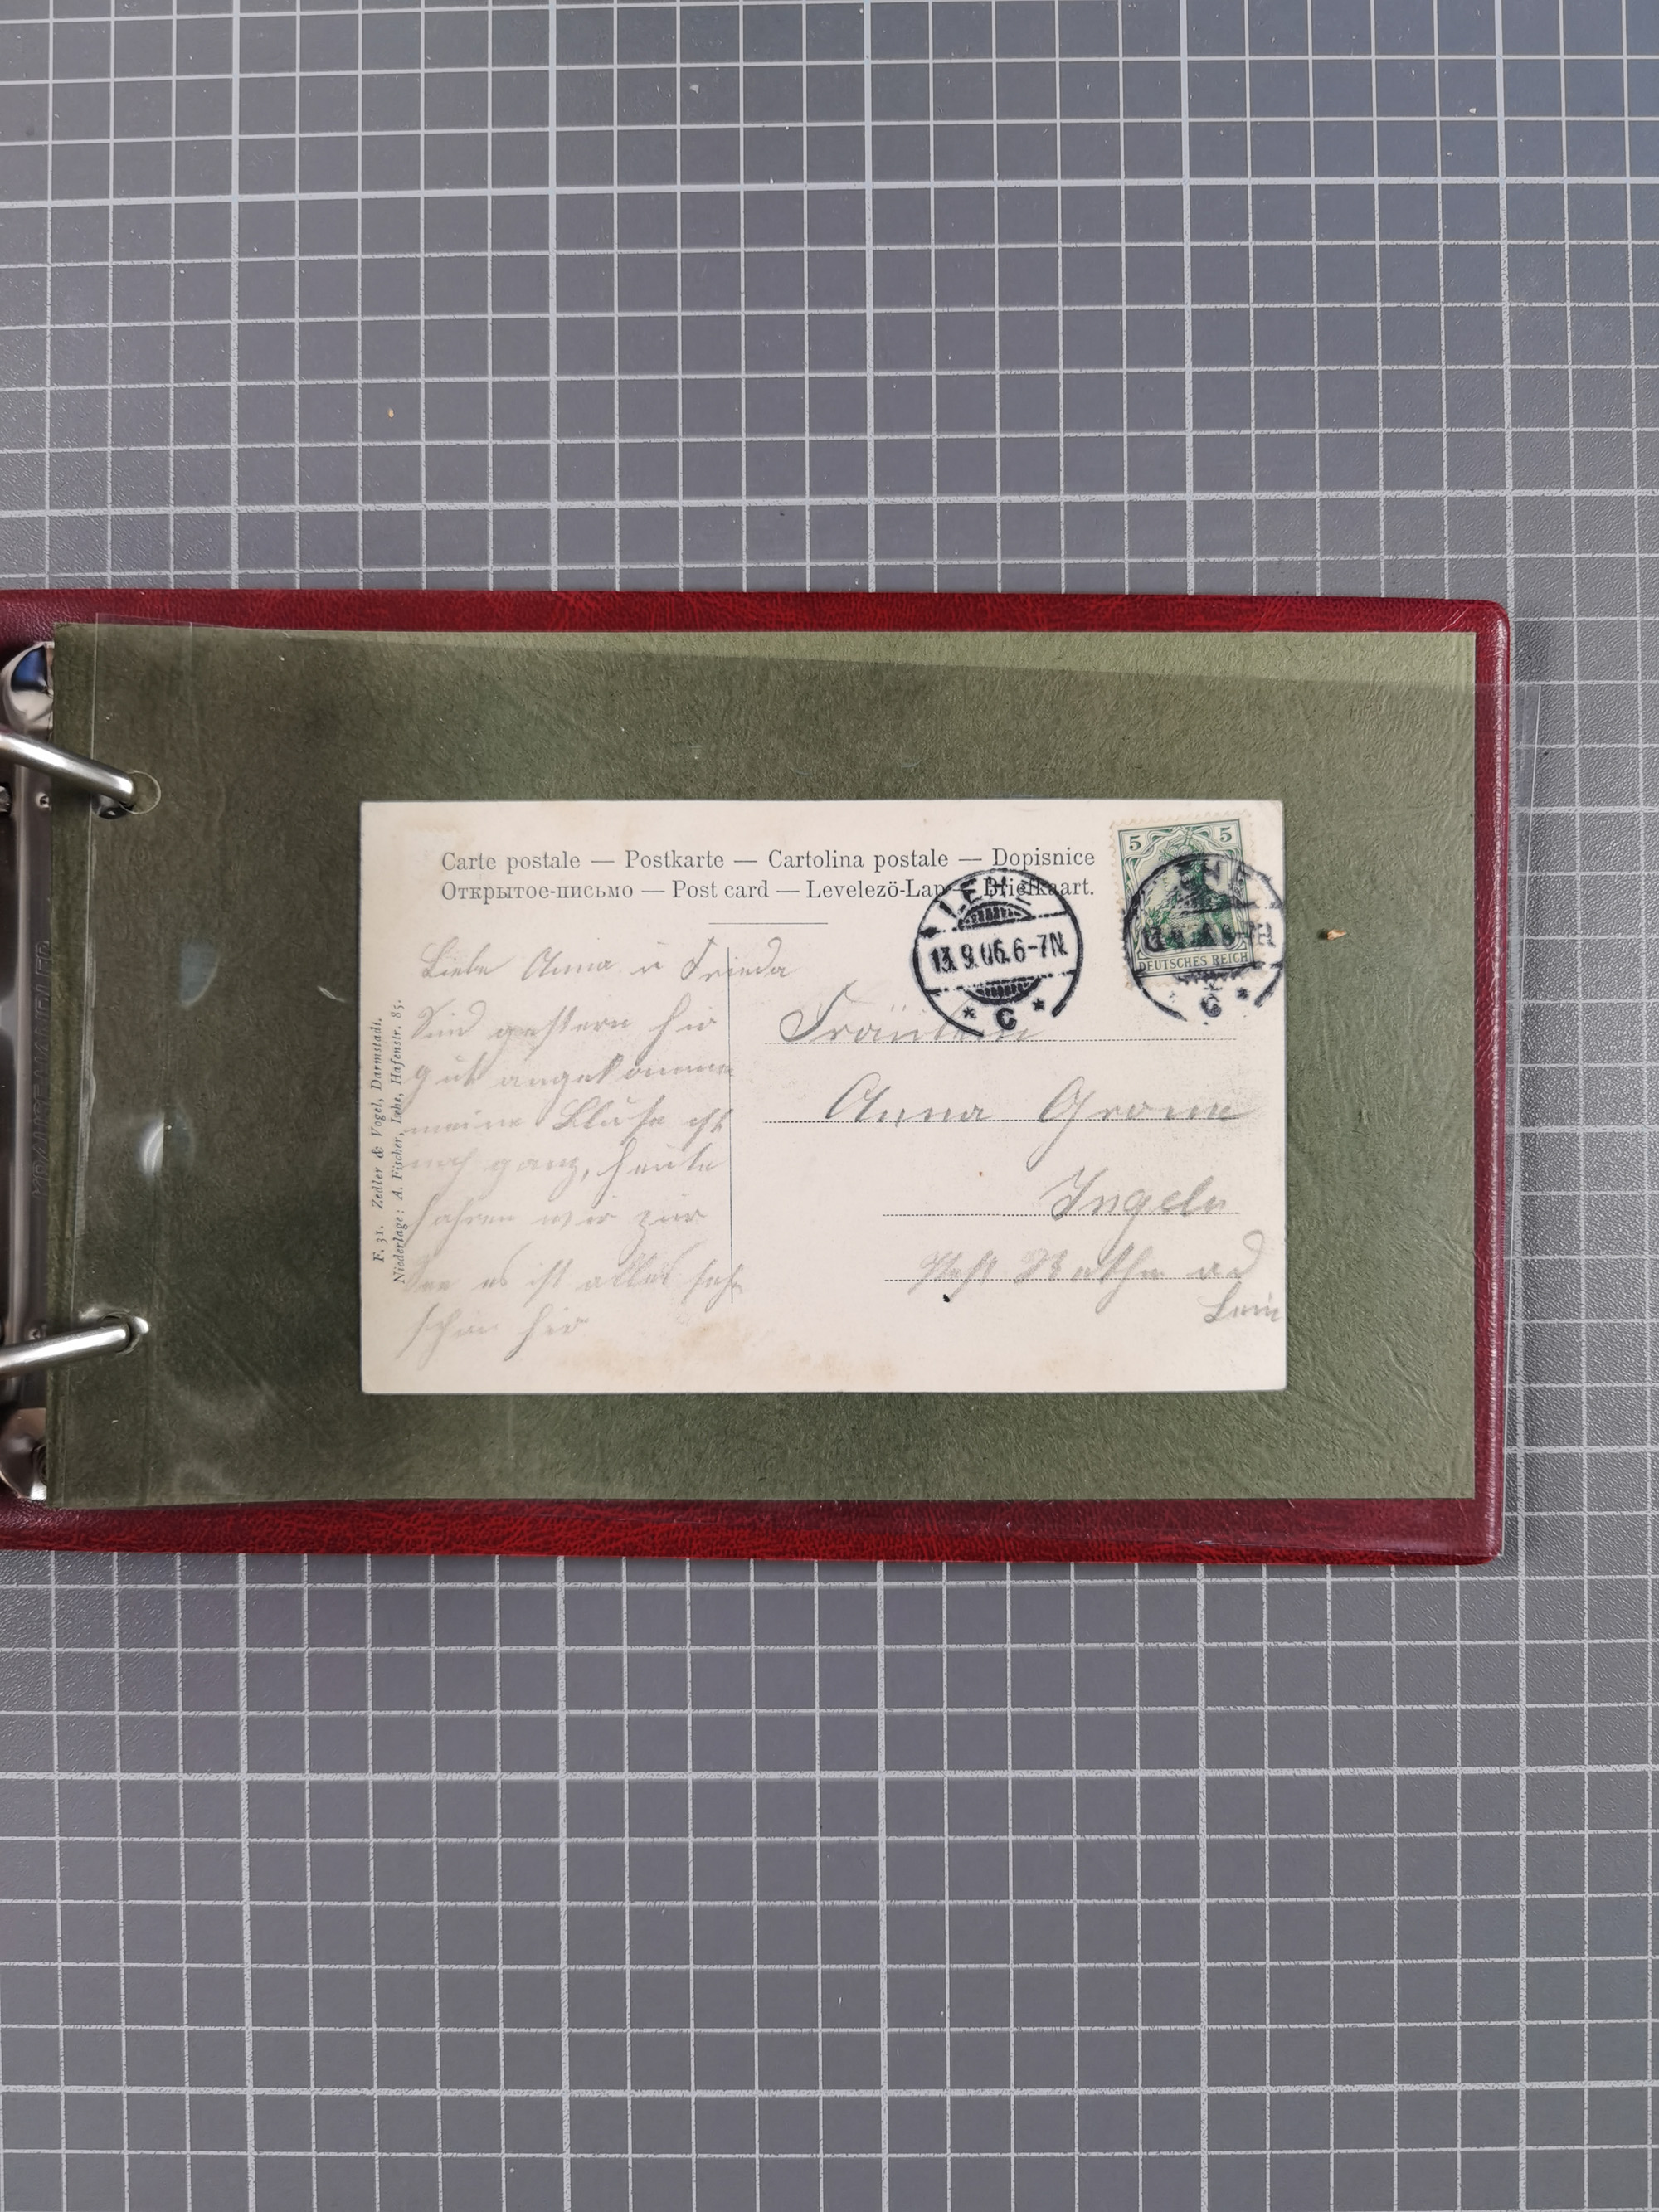 Carte postale — Postkarte — Cartolina postale — Dopisnice
Открытое-письмо — Post card — Levelezö-Lap — Briefkaart.
LEHE
13.9.06.6-7N.
* C *
5 5
DEUTSCHES REICH
C *
Liebe Anna u Frieda
Sind gestern hir
gut angekommen
meine Bluse ist
noch ganz, heute
fahren wir zur
See es ist alles sehr
schön hir
Fräulein
Anna Grome
Ingeln
Post Rethen ad
Leine
F. 31. Zedler & Vogel, Darmstadt.
Niederlage: A. Fischer, Lehe, Hafenstr. 85.